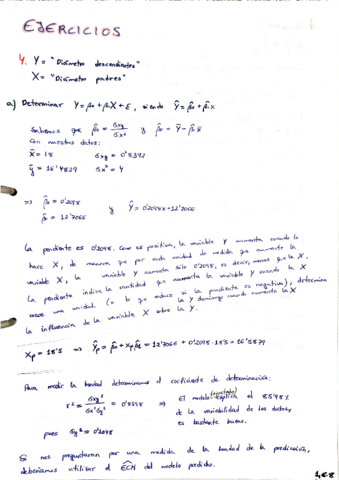 EJERCICIOS
4. Y = "Diámetro descendientes"
X = "Diámetro padres"
a) Determinar Y = β₀ + β₁X + ε, siendo Ŷ = β̂₀ + β̂₁x
Sabemos que β̂₁ = σxy / σx² y β̂₀ = Ȳ - β̂₁x̄
Con nuestros datos:
x̄ = 18 σxy = 0'8392
ȳ = 16'4829 σx² = 4
⇒ = 0'2098
= 12'7066 y Ŷ = 0'2098x + 12'7066
La pendiente es 0'2098. Como es positiva, la variable Y aumenta cuando lo
hace X, de manera que por cada unidad de medida que aumente la
variable X, la variable Y aumenta sólo 0'2098, es decir, menos que la X.
La pendiente indica la cantidad que aumenta la variable Y cuando la X
crece una unidad (o lo que reduce si la pendiente es negativa), determina
la influencia de la variable X sobre la Y.
Xp = 18'5 ⇒ Ŷp = + = 12'7066 + 0'2098 · 18'5 = 16'5879
Para medir la bondad determinamos el coeficiente de determinación:
r² = σxy² / σx²σy² = ⇒ El modelo explica el
de la variabilidad de los datos,
es bastante bueno.
pues σy² =
Si nos preguntaran por una medida de la bondad de la predicción,
deberíamos utilizar el ECM del modelo predicho.